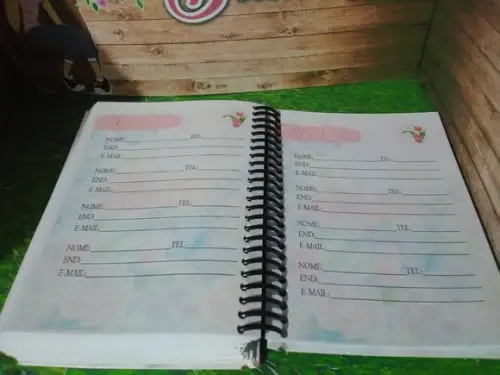 NOME: TEL:
END:
E-MAIL:
NOME: TEL:
END:
E-MAIL:
NOME: TEL:
END:
E-MAIL:
NOME: TEL:
END:
E-MAIL:
NOME: TEL:
END:
E-MAIL:
NOME: TEL:
END:
E-MAIL:
NOME: TEL:
END:
E-MAIL:
NOME: TEL:
END:
E-MAIL: